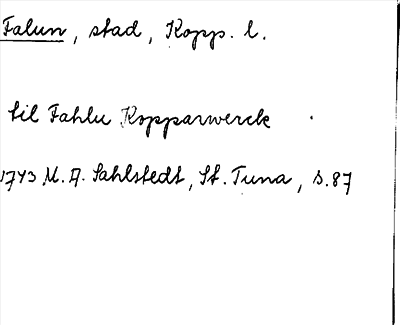 Falun, stad, Kopp. l.
til Fahlu Kopparwerck
1743 M. A. Sahlstedt, St. Tuna, s. 87